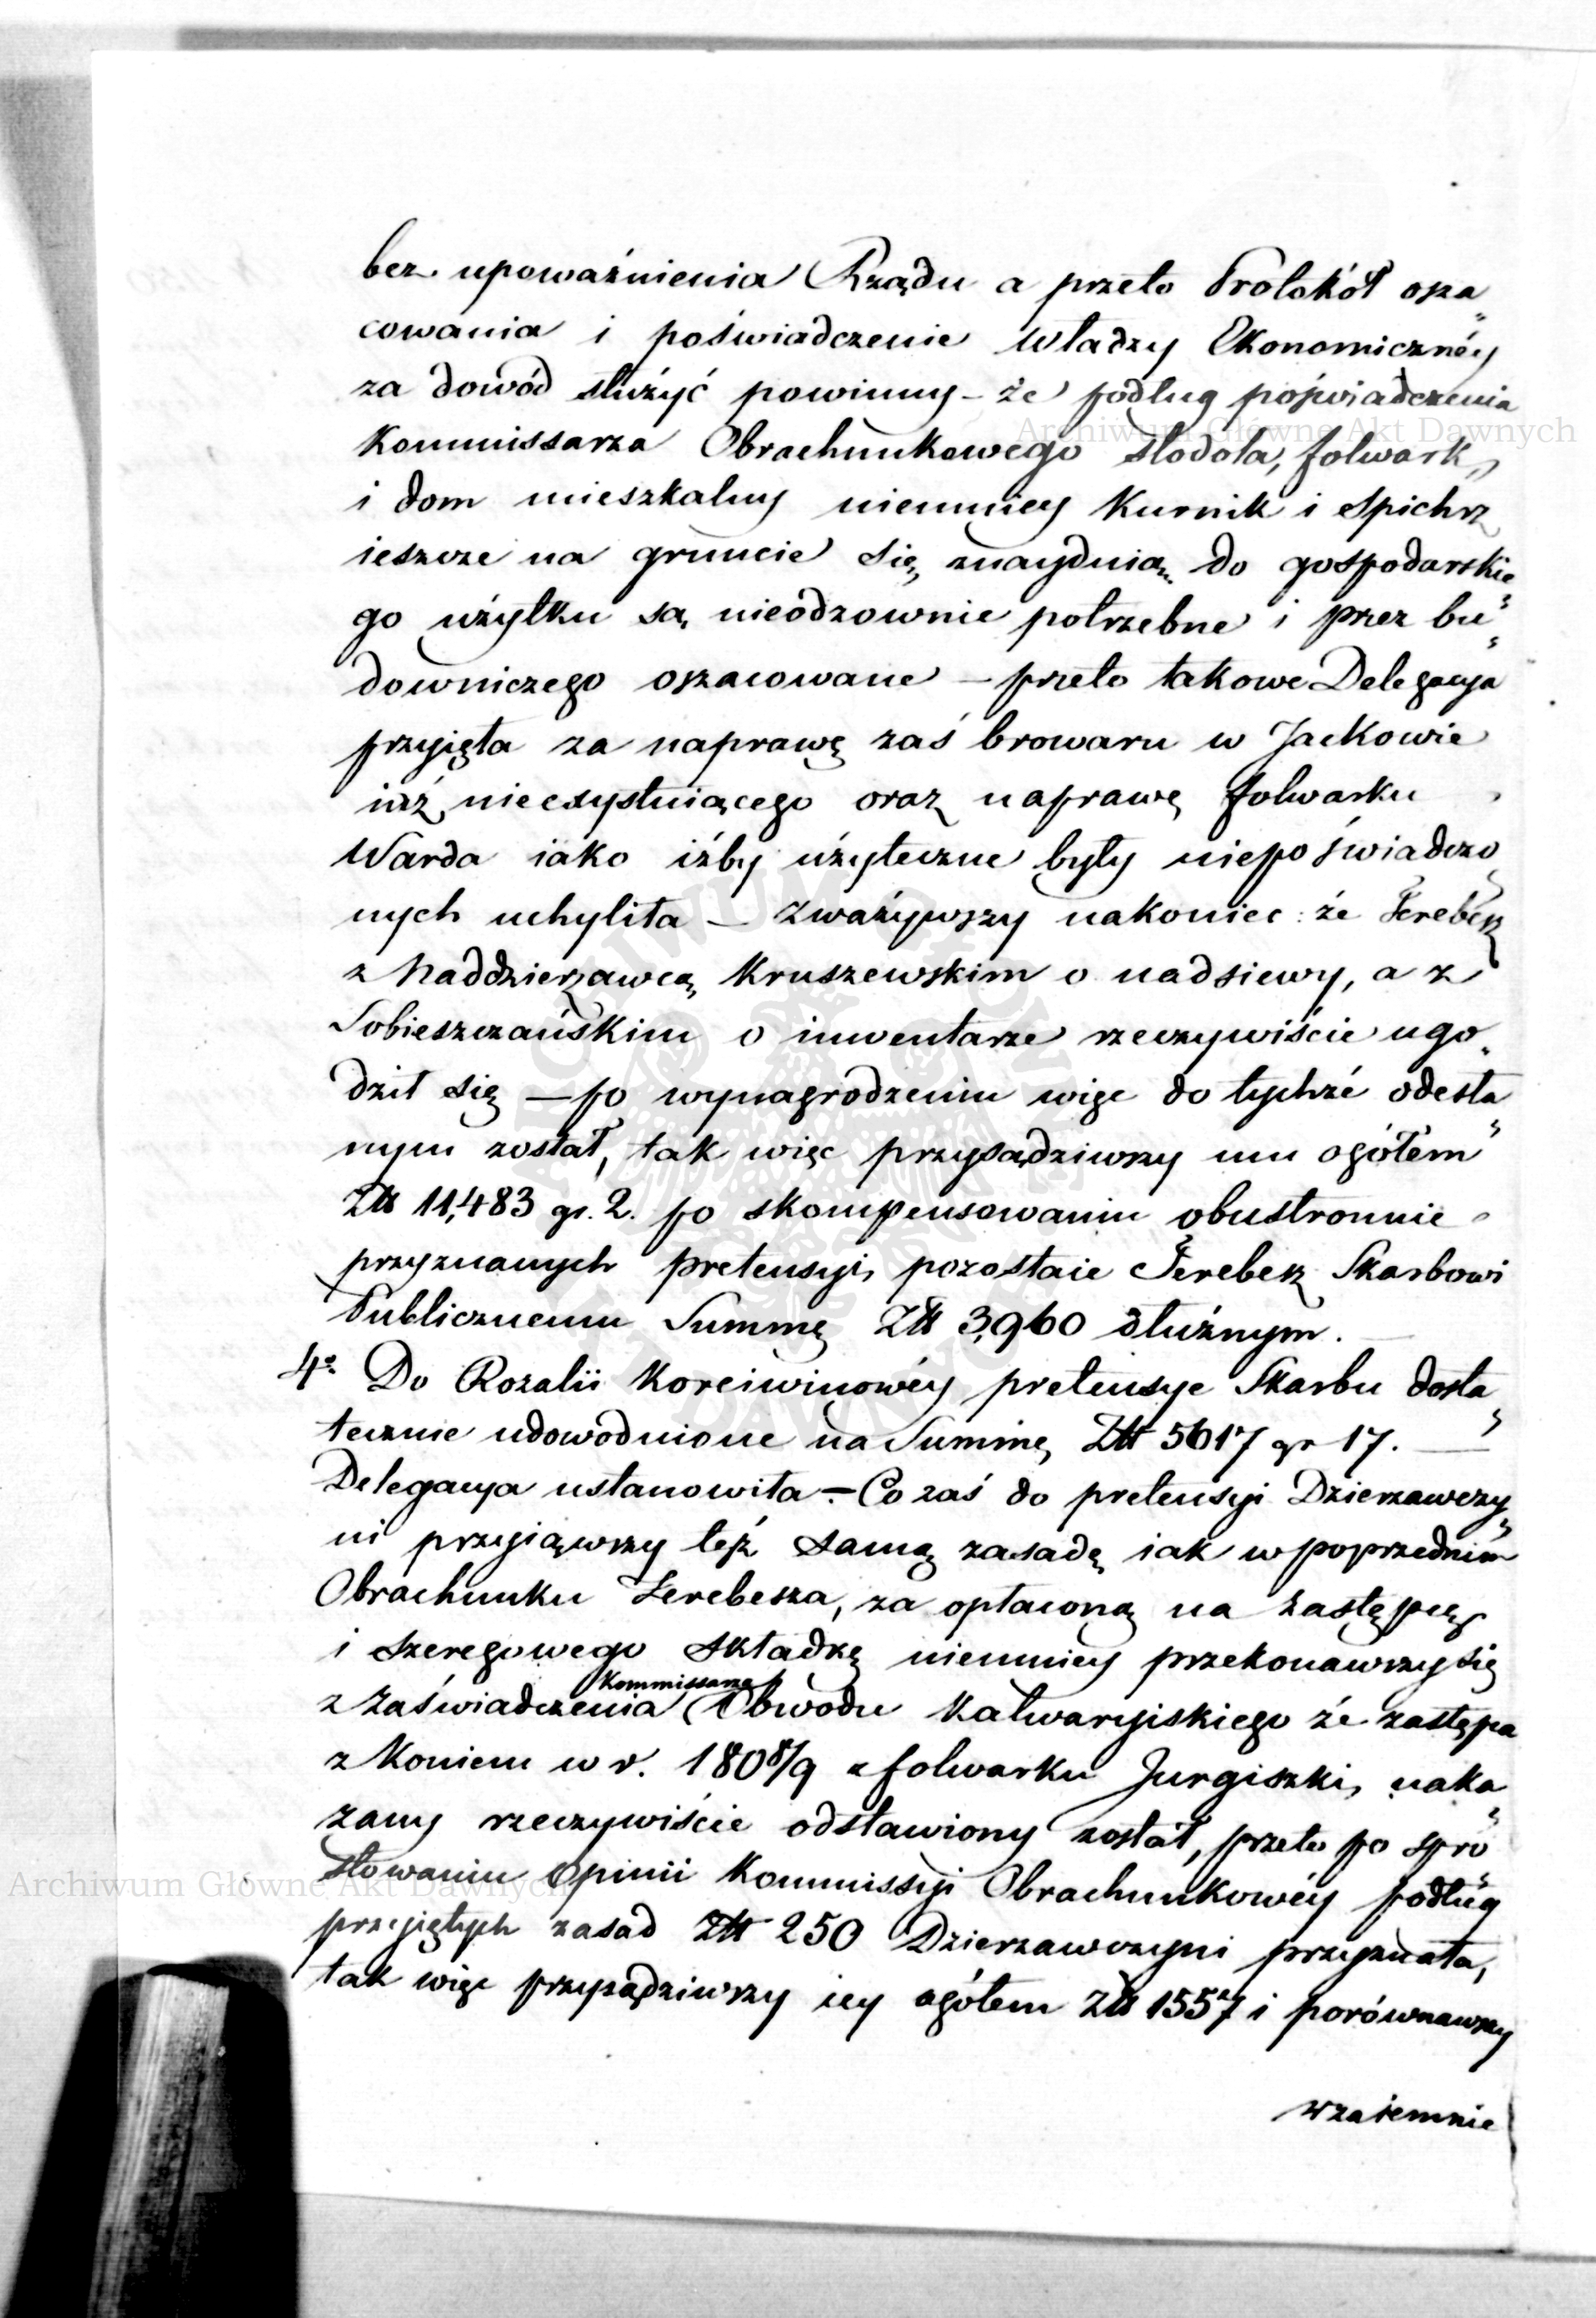 bez upoważnienia Rządu a przeto Protokół osza„
cowania i poświadczenie Władzy Ekonomicznéy
za dowód służyć powinny – że podług poświadczenia
Kommissarza Obrachunkowego stodoła, folwark,
i dom mieszkalny niemniey Kurnik i Spichrz
ieszcze na gruncie się znayduią, do gospodarskie„
go użytku są, nieodzownie potrzebne i przez bu„
downiczego oszacowane – przeto takowe Delegacya
przyięła za naprawę zaś browaru w Jackowie
iuż nieexystuiącego oraz naprawę folwarku
Warda iako iżby użyteczne były niepoświadczo„
nych uchyliła – zważywszy nakoniec: że Ferebesz
z Naddzierzawcą Kruszewskim o nadsiewy, a z
Sobieszczańskim o inwentarze rzeczywiście ugo„
dził się – po wynagrodzeniu więc do tychże odesła„
nym został, tak więc przysądziwszy mu ogółem
Złł 11,483 gr. 2. po skompensowaniu obustronnie
przyznanych pretensyi, pozostaie Ferebesz Skarbowi
Publicznemu Summę Złł 3,960 dłużnym.
4º Do Rozalii Koreiwinowéy pretensye Skarbu dosta„
tecznie udowodnione na Summę Złł 5617 gr 17. —
Delegacya ustanowiła – Co zaś do pretensyi Dzierzawczy„
ni przyiąwszy téż samą zasadę iak w poprzednim
Obrachunku Ferebesza, za opłaconą na zastępcę
i szeregowego składkę niemniey przekonawszy się
z zaświadczenia Kommissarza Obwodu Kalwaryiskiego że zastępca
z Koniem w r. 1808/9 z folwarku Jurgiszki, naka„
zany rzeczywiście odstawiony został, przeto po spro„
stowaniu Opinii Kommissyi Obrachunkowéy podług
przyiętych zasad Złł 250 Dzierzawczyni przyznała,
tak więc przysądziwszy iey ogółem Złł 1557 i porównawszy
wzaiemnie
Archiwum Główne Akt Dawnych
Archiwum Główne Akt Dawnych